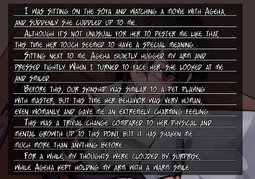 I was sitting on the sofa and watching a movie with Ageha,
and suddenly she cuddled up to me.
Although it's not unusual for her to pester me like that,
this time her touch seemed to have a special meaning.
Sitting next to me, Ageha quietly hugged my arm and
pressed tightly. When I turned to face her, she looked at me
and smiled.
Before this, our skinship was similar to a pet playing
with master, but this time her behavior was very human,
even womanly and gave me an extremely charming feeling.
This was a trivial change compared to her physical and
mental growth up to this point, but it has shaken me
much more than anything before.
For a while, my thoughts were clouded by surprise,
while Ageha kept holding my arm with a warm smile.